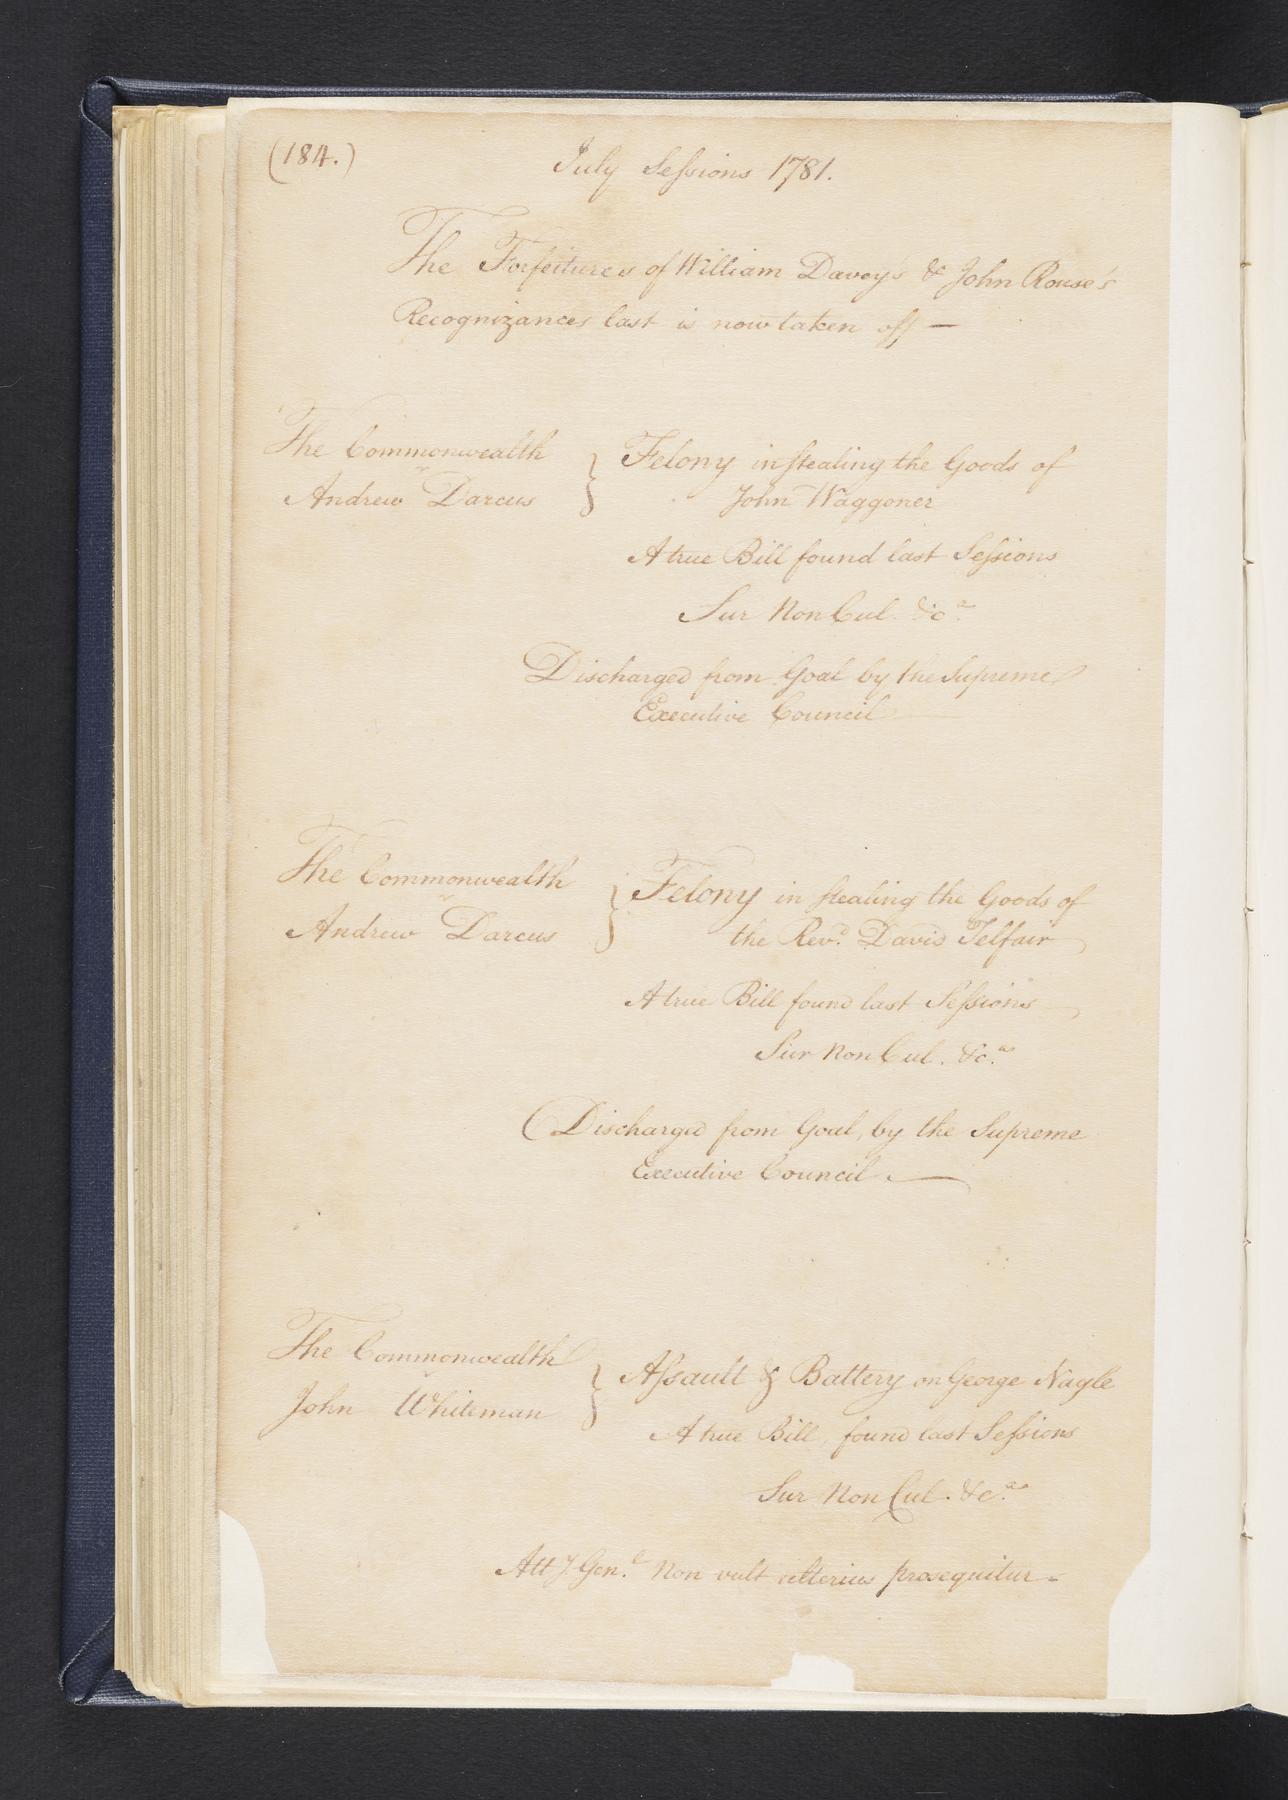 (184.)
July Sessions 1781.
The Forfeitures of William Davey's & John Rouse's
Recognizances last is now taken off —
The Commonwealth
vs
Andrew Darcus
} Felony in stealing the Goods of
John Waggoner
A true Bill found last Sessions
Sur Non Cul. &c.a
Discharged from Goal by the Supreme
Executive Council
The Commonwealth
vs
Andrew Darcus
} Felony in stealing the Goods of
the Revd. David Telfair
A true Bill found last Sessions
Sur Non Cul. &c.as
Discharged from Goal, by the Supreme
Executive Council. —
The Commonwealth
vs
John Whiteman
} Assault & Battery on George Nagle
A true Bill, found last Sessions
Sur Non Cul. &c.as
Atty. Gen.l Non vult ulterius prosequitur -